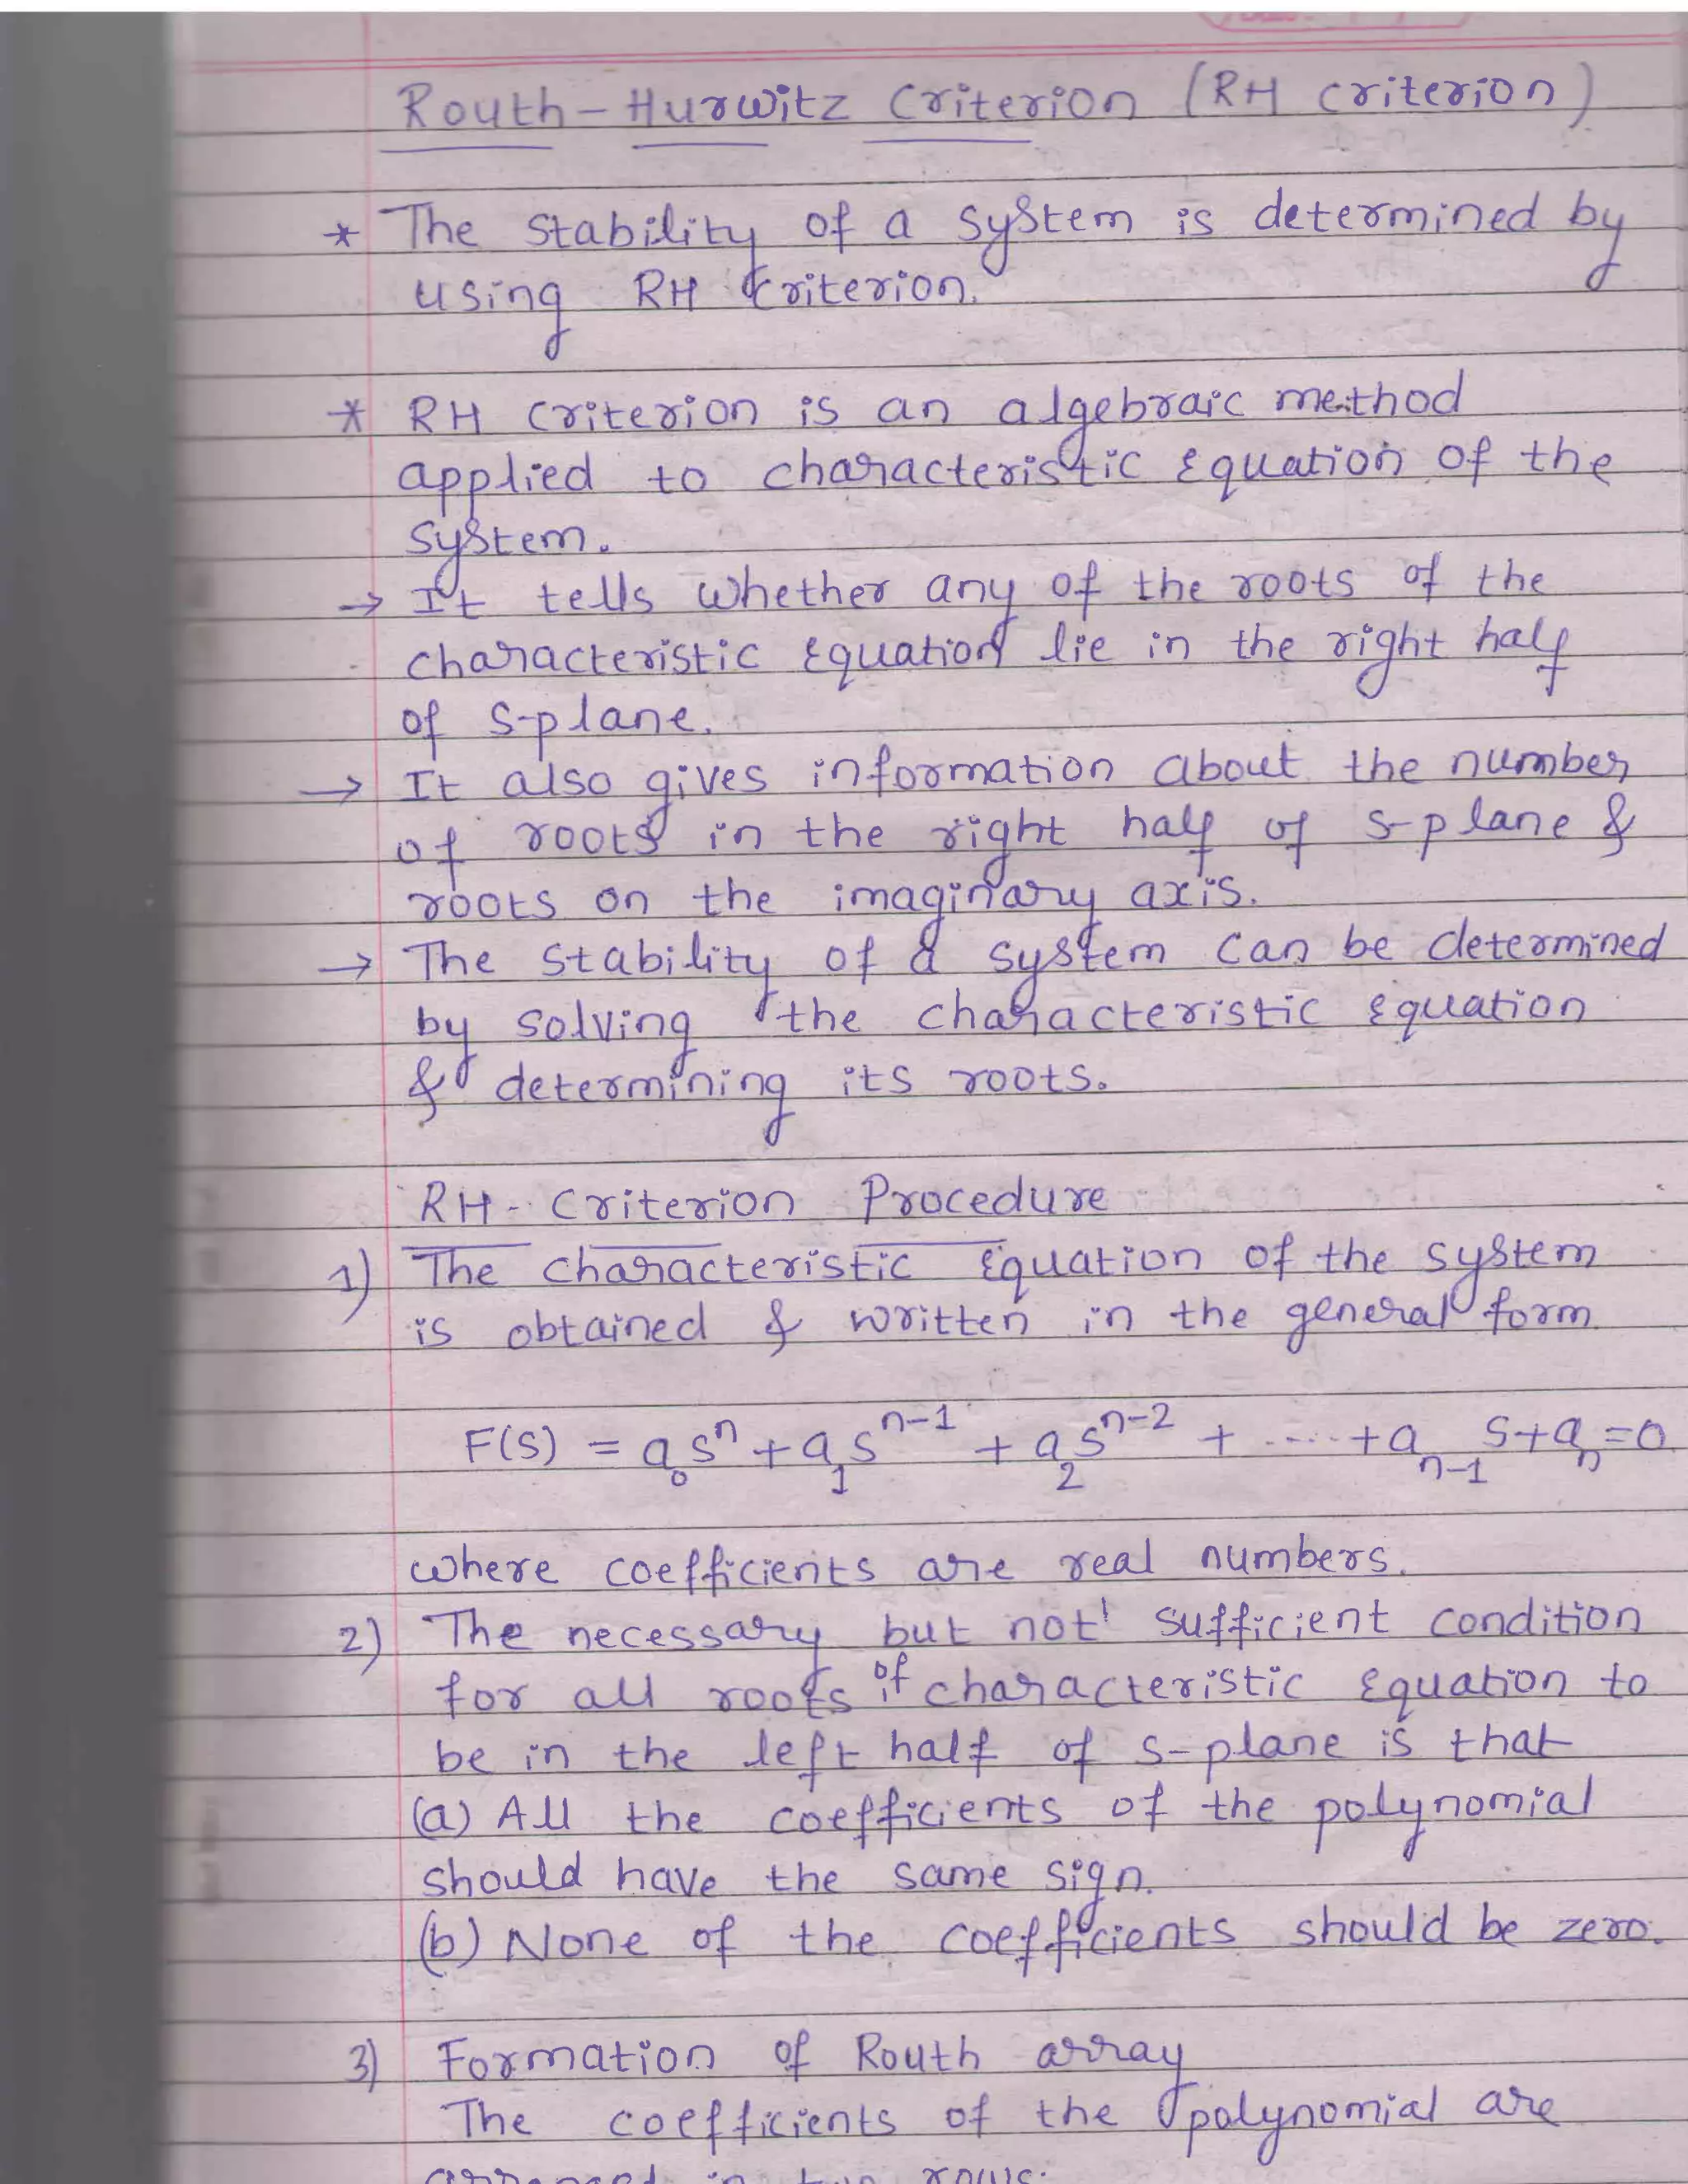 Routh-Hurwitz Criterion (RH criterion)
* The stability of a system is determined by
using RH criterion.
* RH criterion is an algebraic method
applied to characteristic equation of the
system.
→ It tells whether any of the roots of the
characteristic equation lie in the right half
of s-plane.
→ It also gives information about the number
of roots in the right half of s-plane &
roots on the imaginary axis.
→ The stability of a system can be determined
by solving the characteristic equation
& determining its roots.
RH-criterion Procedure
1) The characteristic equation of the system
is obtained & written in the general form
F(s) = a₀sⁿ + a₁sⁿ⁻¹ + a₂sⁿ⁻² + .... + aₙ₋₁ s + aₙ = 0
where coefficients are real numbers.
2) The necessary but not sufficient condition
for all roots of characteristic equation to
be in the left half of s-plane is that
(a) All the coefficients of the polynomial
should have the same sign.
(b) None of the coefficients should be zero.
3) Formation of Routh array
The coefficients of the polynomial are
arranged in two rows.